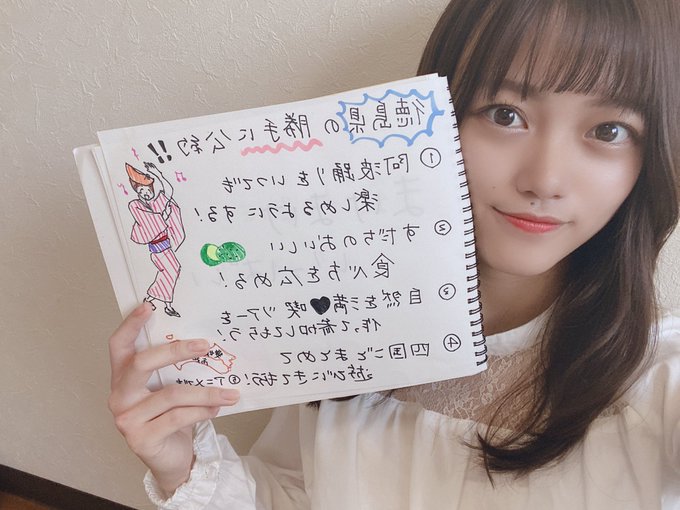 徳島県の勝手に公約!!
① 阿波踊りをいつでも
楽しめるようにする!
② すだちのおいしい
食べ方を広める!
③ 自然を満喫ツアーを
作って参加してもらう!
④ 四国ごとまとめて
遊びにきてもらう!
⑤アニメ